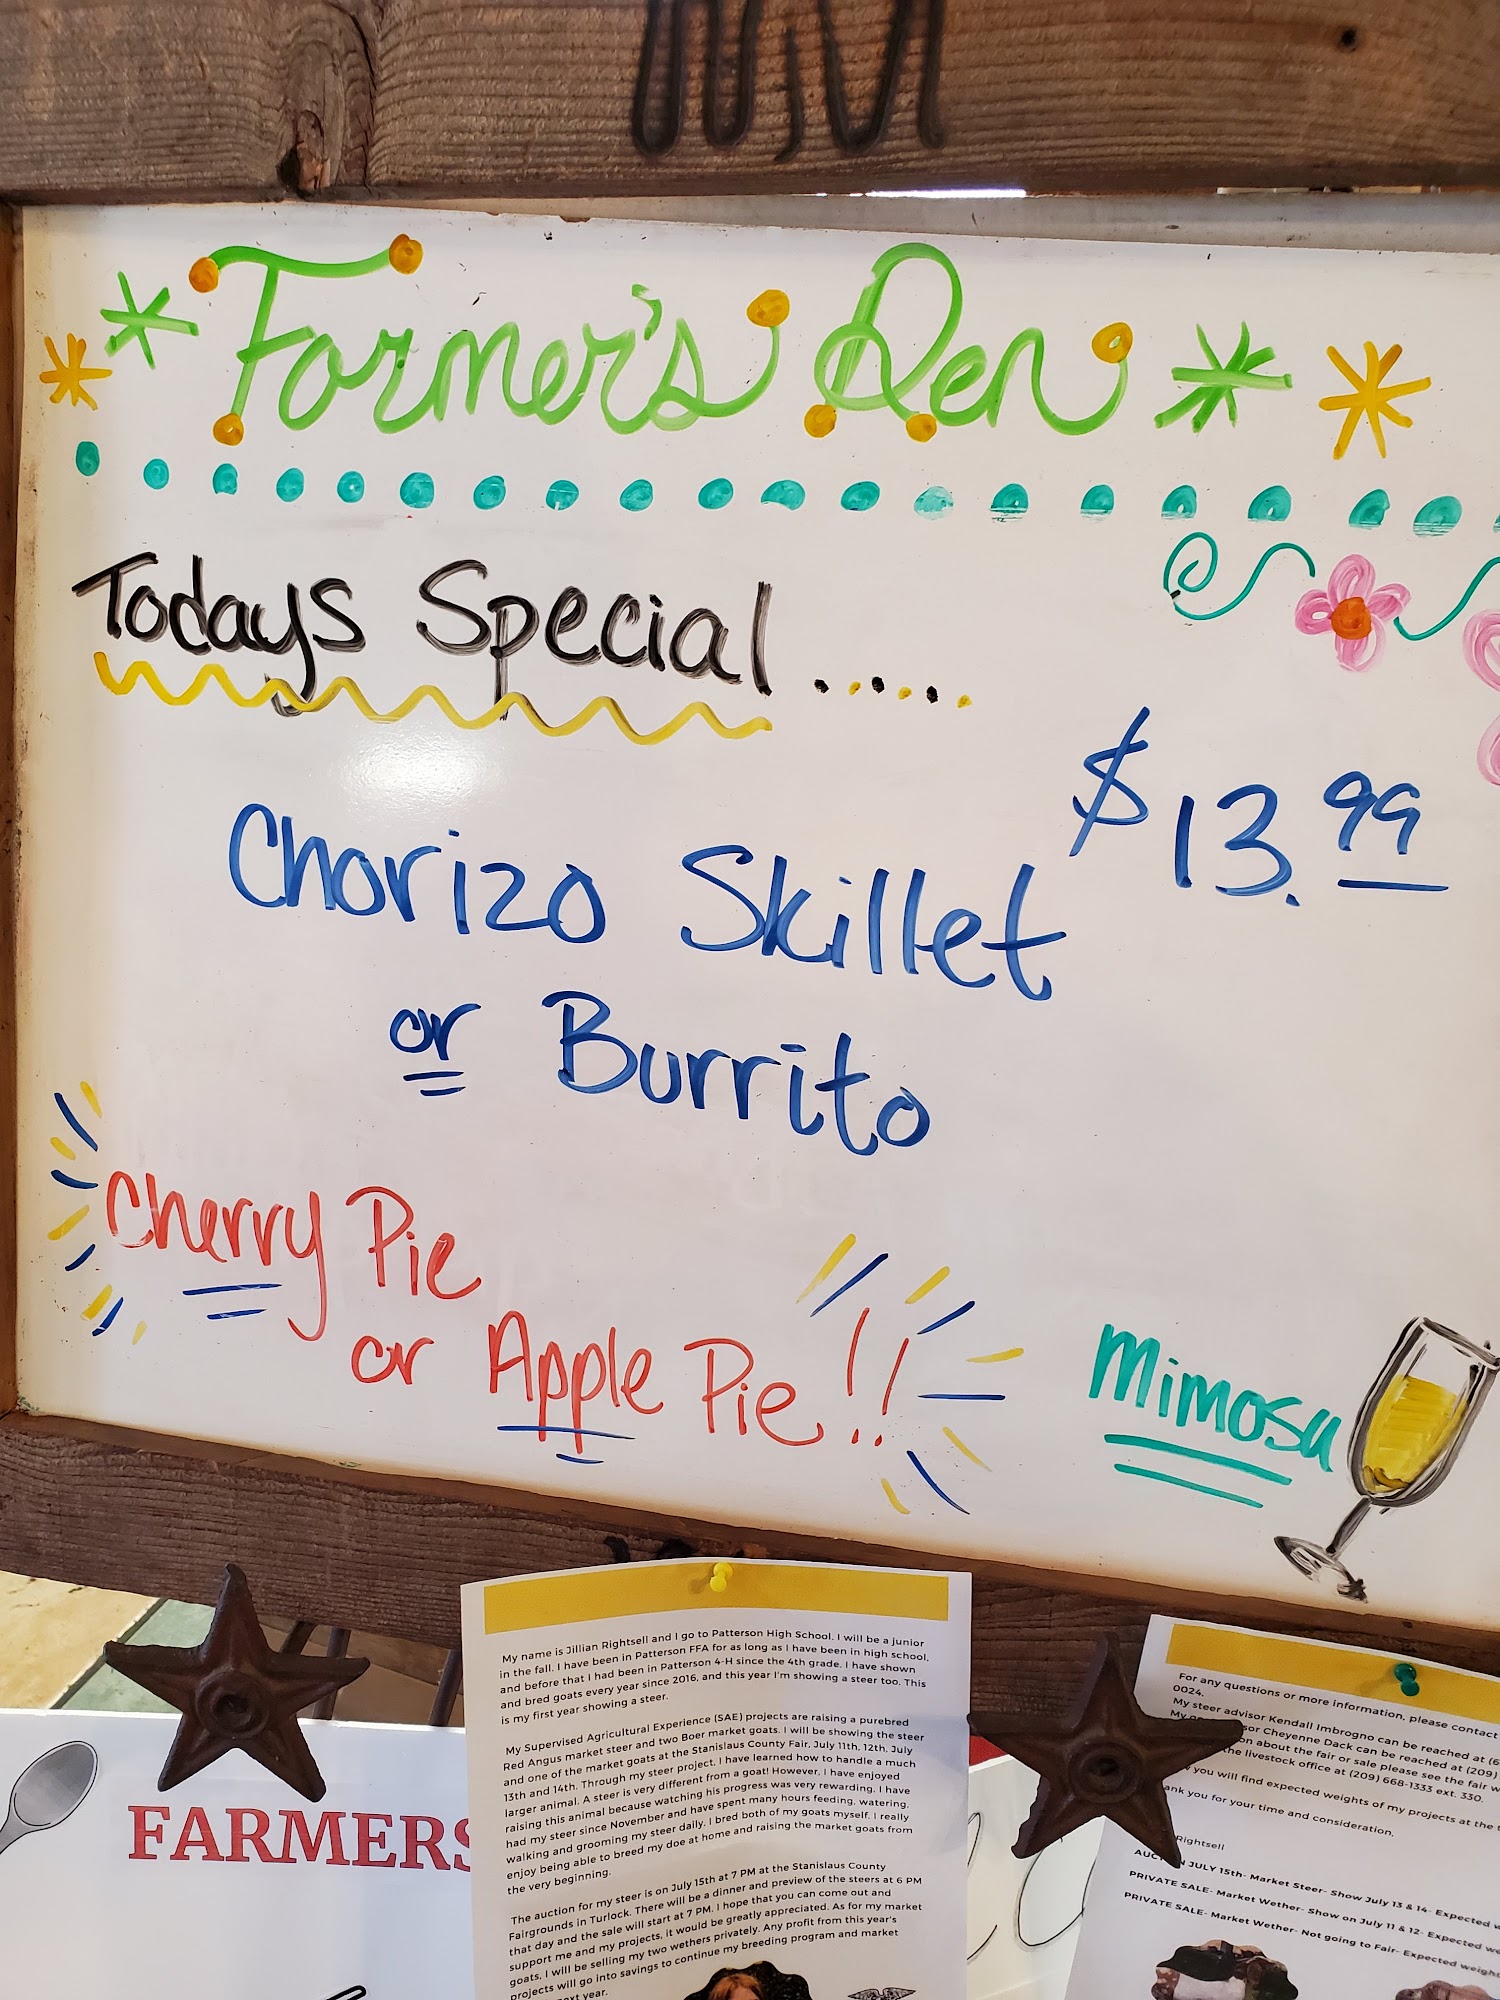 Farmer's Den
Todays Special ......
$13.99
Chorizo Skillet
or Burrito
Cherry Pie
or Apple Pie!!
Mimosa
My name is Jillian Rightsell and I go to Patterson High School. I will be a junior
in the fall. I have been in Patterson FFA for as long as I have been in high school,
and before that I had been in Patterson 4-H since the 4th grade. I have shown
and bred goats every year since 2016, and this year I'm showing a steer too. This
is my first year showing a steer.
My Supervised Agricultural Experience (SAE) projects are raising a purebred
Red Angus market steer and two Boer market goats. I will be showing the steer
and one of the market goats at the Stanislaus County Fair, July 11th, 12th, July
13th and 14th. Through my steer project, I have learned how to handle a much
larger animal. A steer is very different from a goat! However, I have enjoyed
raising this animal because watching his progress was very rewarding. I have
had my steer since November and have spent many hours feeding, watering,
walking and grooming my steer daily. I bred both of my goats myself. I really
enjoy being able to breed my doe at home and raising the market goats from
the very beginning.
The auction for my steer is on July 15th at 7 PM at the Stanislaus County
Fairgrounds in Turlock. There will be a dinner and preview of the steers at 6 PM
that day and the sale will start at 7 PM. I hope that you can come out and
support me and my projects, it would be greatly appreciated. As for my market
goats, I will be selling my two wethers privately. Any profit from this year's
projects will go into savings to continue my breeding program and market
next year.
For any questions or more information, please contact
0024.
My steer advisor Kendall Imbrogno can be reached at (6
Cheyenne Dack can be reached at (209)
on about the fair or sale please see the fair w
the livestock office at (209) 668-1333 ext. 330.
you will find expected weights of my projects at the
ank you for your time and consideration.
Rightsell
JULY 15th- Market Steer- Show July 13 & 14- Expected w
PRIVATE SALE- Market Wether- Show on July 11 & 12- Expected we
PRIVATE SALE- Market Wether- Not going to Fair- Expected weight
FARMERS